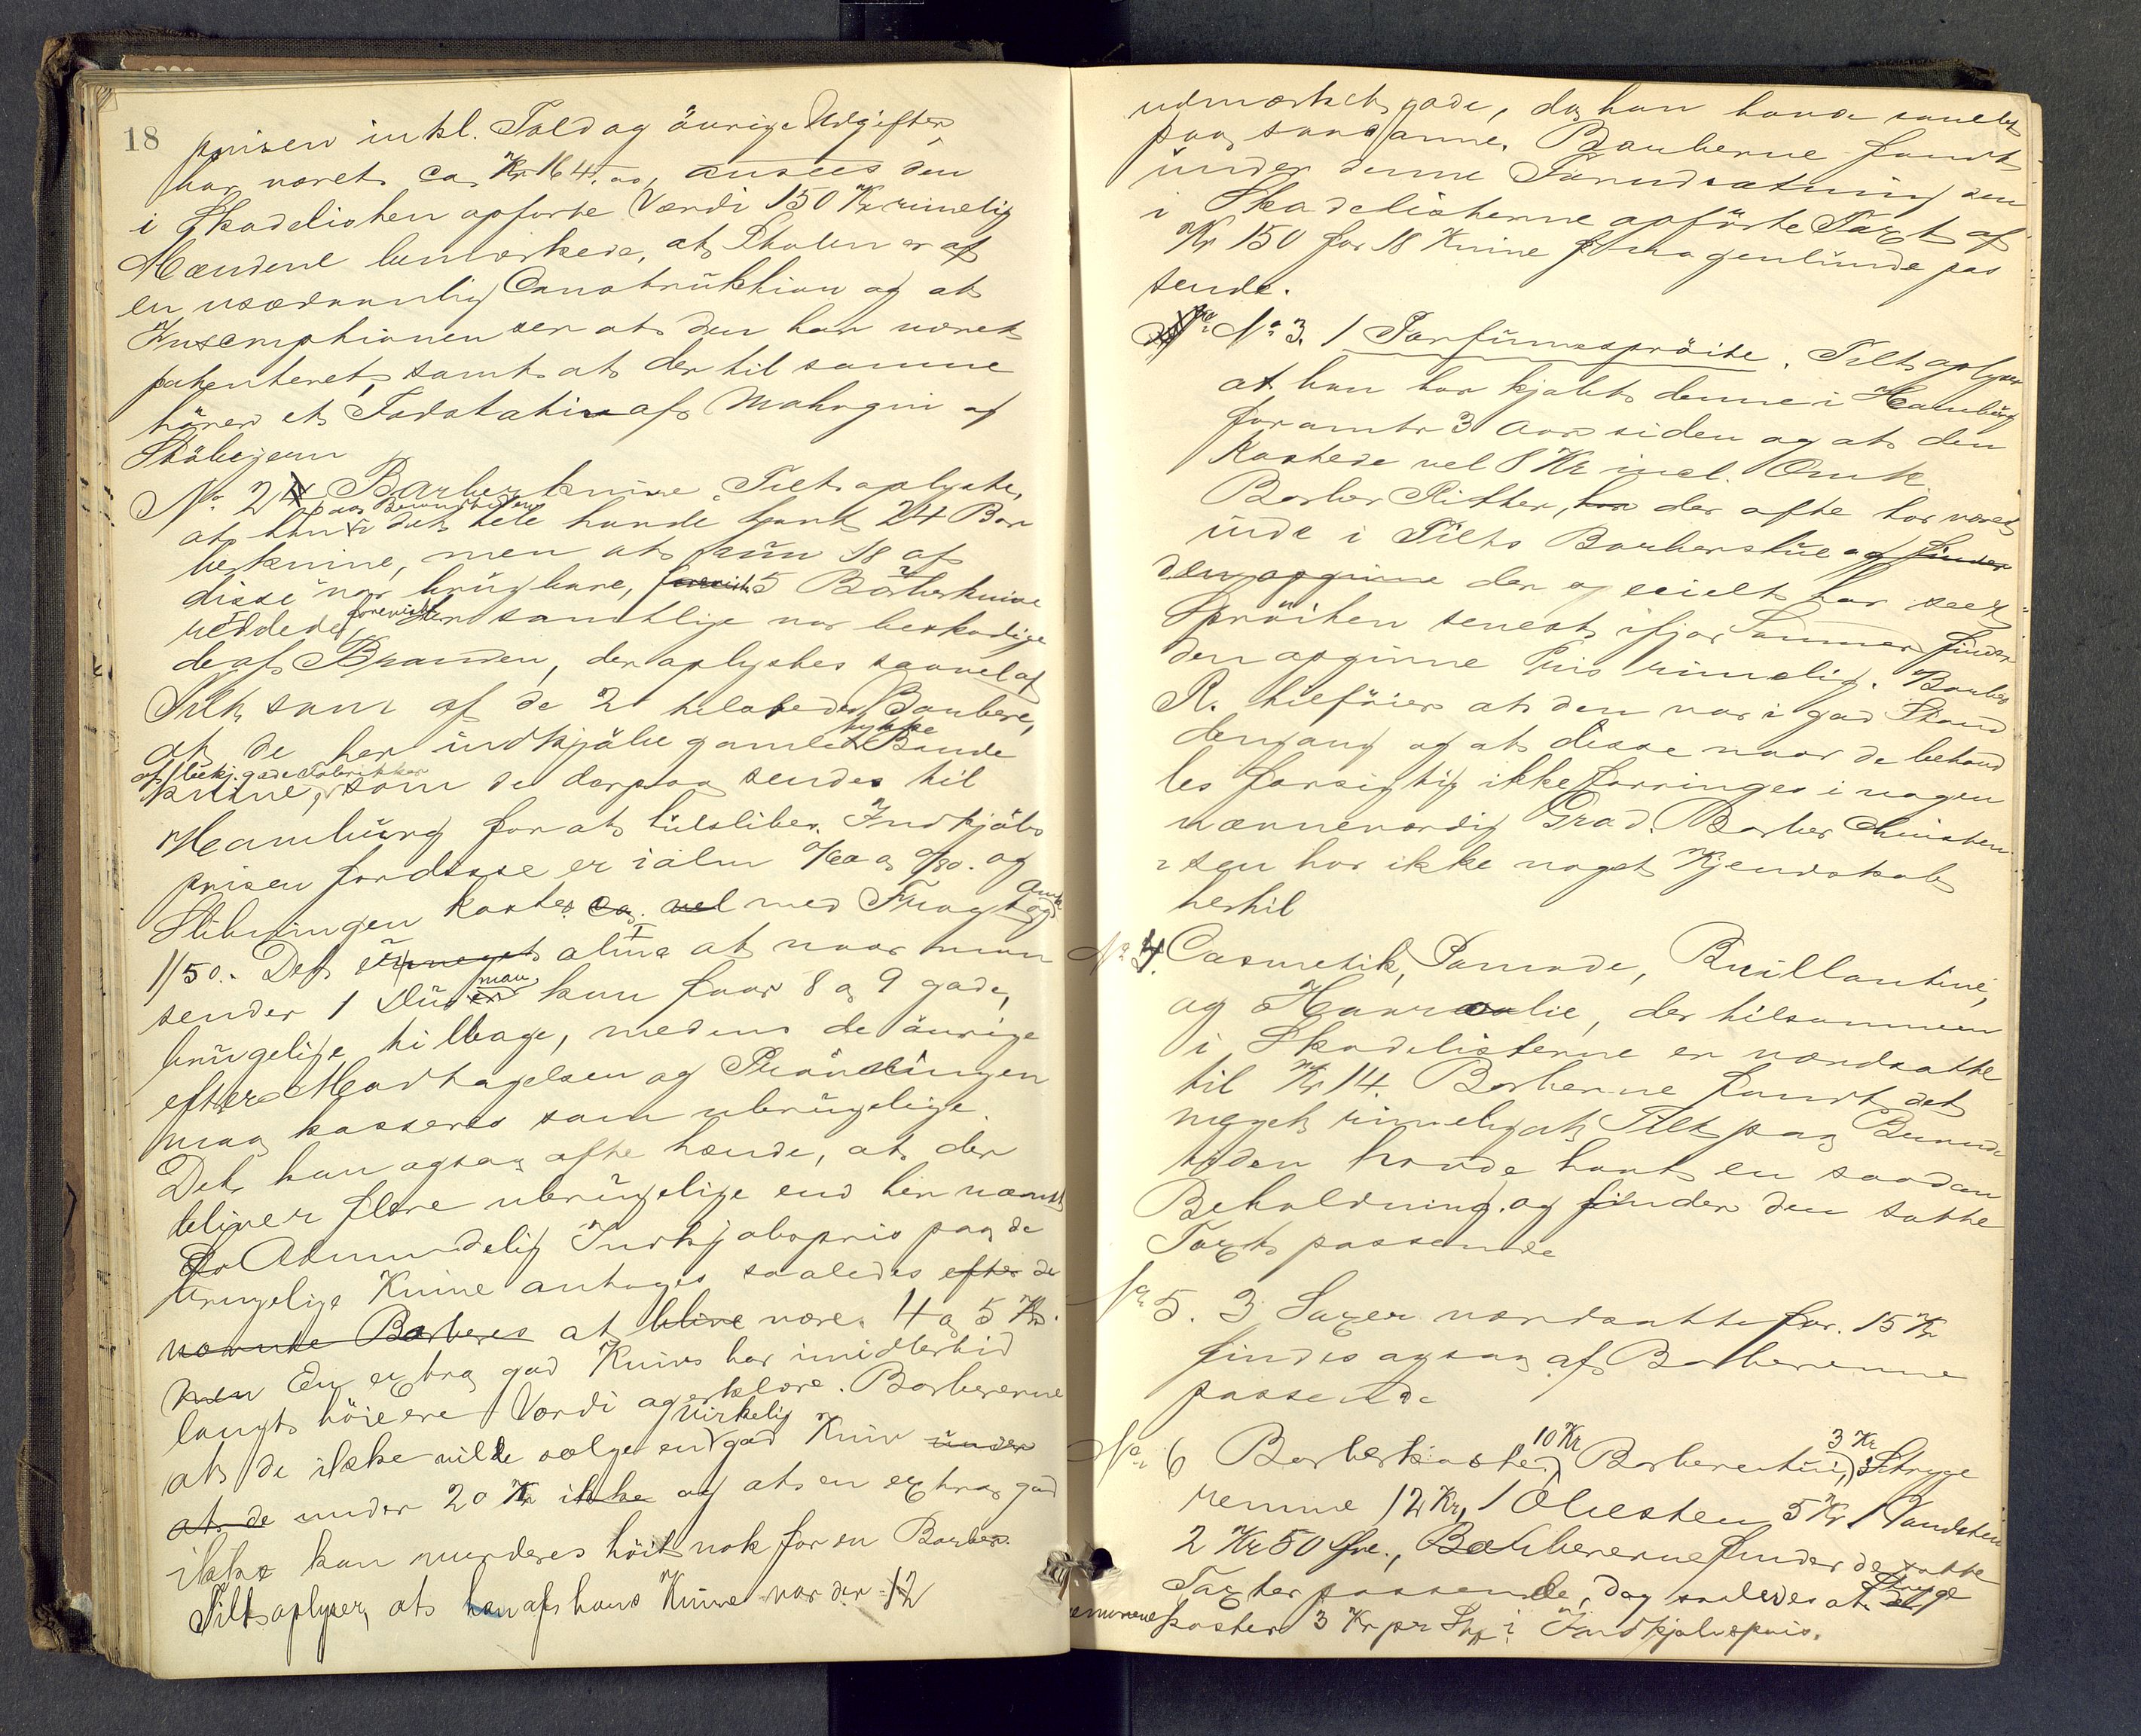 18
prisen inkl. Told og øvrige Udgifter,
har været ca Kr 164.00, ansees den
i Skadelisten opførte Værdi 150 Kr rimelig
Mændene bemærkede, at Stolen er af
en usædvanlig Construktion og at
Inscriptionen ser at den har været
patenteret, samt at der til samme
hører et Fodstativ af Mahogni og
Støbejern
No 2 Barberknive. Tilt oplyste,
paa Brandtiden
at han i det hele havde havt 24 Bar
berknive, men at kun 18 af
disse var brugbare, 5 Barberknive
reddedes forevistes samtlige var beskadige
de af Branden, der oplystes saavel af
Tilt som af de 2 tilstedev. Barbere,
at de her indkjøbe gamle tykke Bonde
af bekj. gode Fabrikker
knive, som de derpaa sendes til
Hamburg for at hulslibes. Indkjøbs
prisen for disse er i alm 0/60 a 0/80. og
Slibningen koster ca. vel med Fragt og Omk
1/50. Det er meget alm. at naar man
sender 1 Dusin man kun faar 8 a 9 gode,
brugelige tilbage, medens de øvrige
efter Modtagelsen og Prøvningen
maa kasseres som ubrugelige.
Det kan ogsaa ofte hænde, at der
bliver flere ubrugelige end her nævnt
En Almindelig Indkjøbspris paa de
brugelige Knive antages saaledes efter de
nævnte Barberes at blive være 4 a 5 Kr.
men En extra god Kniv har imidlertid
langt høiere Værdi og erklære Barbererne
at de ikke vilde sælge en virkelig god Kniv under
at de under 20 Kr ikke og at en extra god
ikke kan vurderes høit nok for en Barber.
Tilt oplyser, at han af hans Knive var der 12
udmærket gode, da han havde samlet
paa saadanne. Barberne fandt
under denne Forudsætning den
i Skadelisterne opførte Taxt af
Kr 150 for 18 Knive passende
sende.
No 3. 1 Parfumesprøite. Tilt oplyser
at han har kjøbt denne i Hamburg
for omtr 3 Aar siden og at den
kostede vel 8 Kr incl. Omk.
Barber Ritter, har der ofte har været
inde i Tilts Barberstue og finder
den opgivne der specielt har seet
Sprøiten senest ifjor Sommer finder
den opgivne Pris rimelig. Barber
R. tilføier at den var i god Stand
dengang og at disse naar de behand
les forsigtig ikke forringes i nogen
nævneværdig Grad. Barber Christen
sen har ikke noget Kjendskab
hertil
No 4. Cosmetik, Pomade, Brillantine,
og Haarolie, der tilsammen
i Skadelisterne er værdsatte
til Kr 14. Barberne fandt det
meget rimelig at Tilt paa Brand
tiden havde havt en saadan
Beholdning og finder den satte
Taxt passende
No 5. 3 Saxer værdsatte for. 15 Kr
findes ogsaa af Barbererne
passende
No 6 Barberkoster 10 Kr Barberetui, 3 Kr 3 Stryge
remme 12 Kr, 1 Oliesten 5 Kr 1 Vandsten
2 Kr 50 Øre., Barbererne finder de satte
Taxter passende, dog saaledes at Stryge
remmene koster 3 Kr pr Stk i Indkjøbspris.